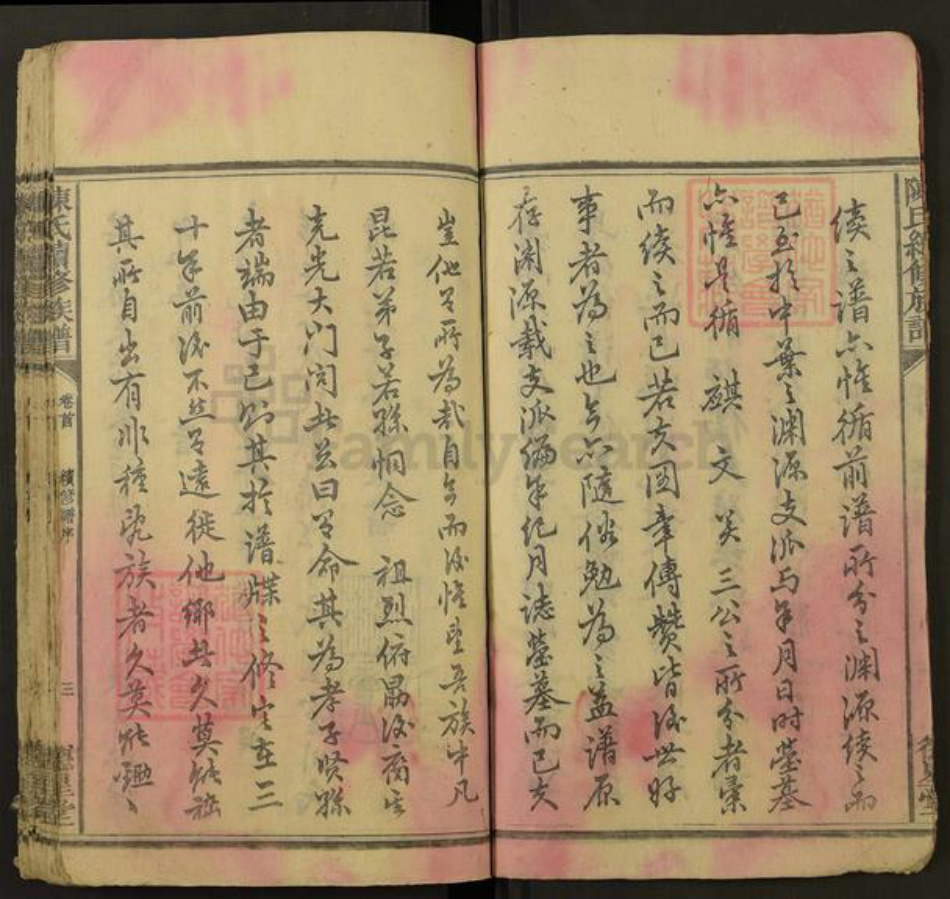 陳氏續修族譜
續之譜亦惟循前譜所分之淵源續之而
已至於中葉之淵源支派与年月日時塋墓
亦惟是循 麒 文 三公之所分者彙
而續之而已若夫圖章傳贊皆後世好
事者為之也今亦隨俗勉為之益譜原
存淵源載支派編年紀月誌塋墓而已夫
豈他有所為哉自今而後惟望吾族中凡
昆若弟子若孫恫念 祖烈俯勗後裔
克光大門閭此茲曰有命其為孝子賢孫
者端由于已則其於譜牒之修宜在三
十年前後不然有遠徙他鄉其久莫能
其所自出有非種亂族者久莫能鑑
陳氏續修族譜
卷首
續修譜序
三
familysearch